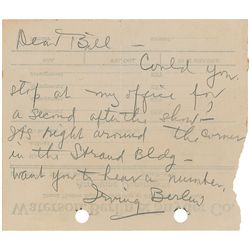 Dear Bill —
Could you
stop at my office for
a second after the show?
Its right around the corner
in the Strand Bldg —
want you to hear a number,
Irving Berlin
Waterson Berlin & Snyder Co.